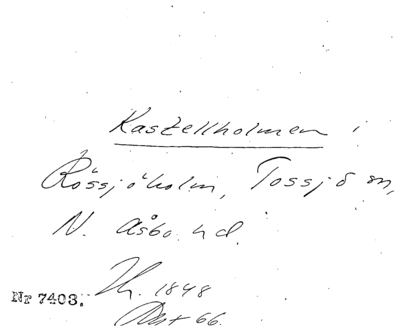 Kastellholmen i
Rössjöholm, Tossjö sn,
N. Åsbo hd.
Th. 1848
Nr 7403.
66.